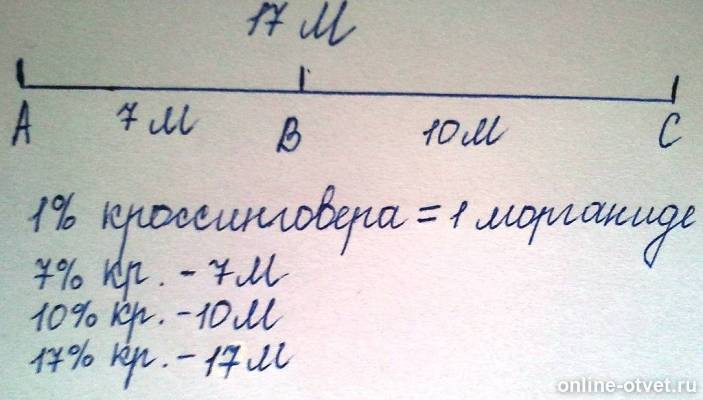 17 М
7 М 10 М
А В С
1% кроссинговера = 1 морганиде
7% кр. - 7 М
10% кр. - 10 М
17% кр. - 17 М
online-otvet.ru